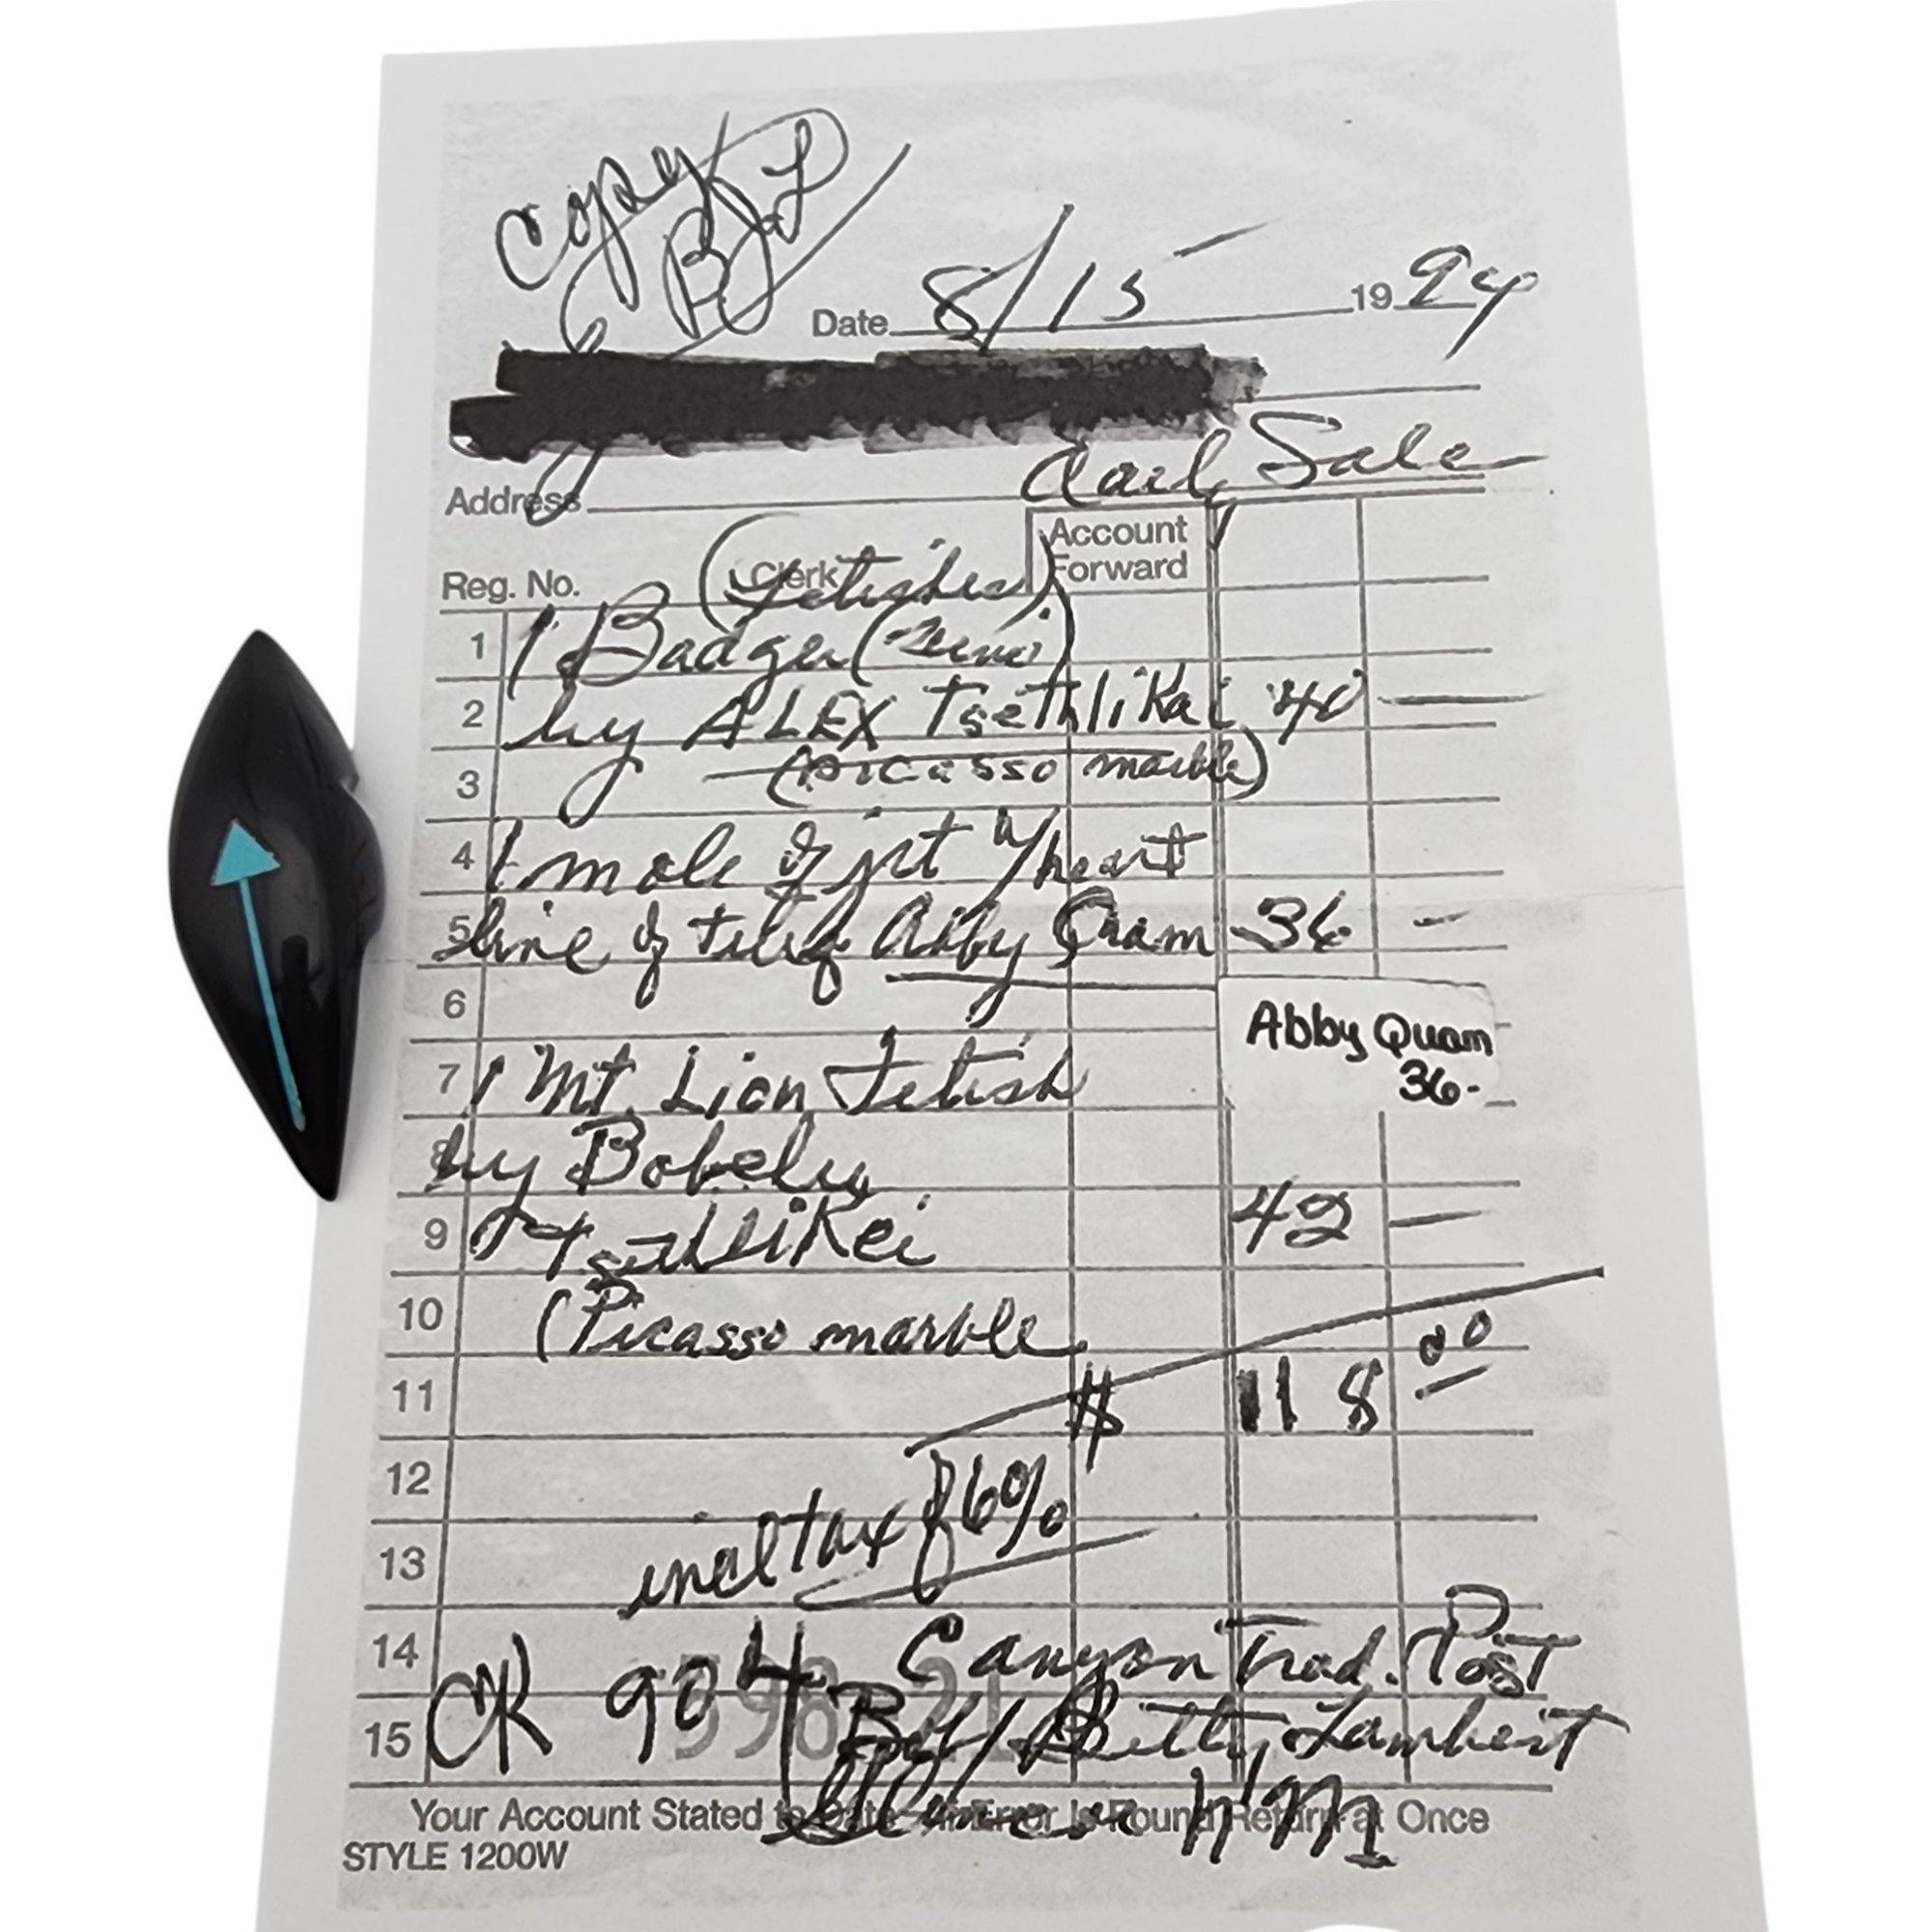 Copy
BJL
Date 8/15 - 19 94
Sale
Address
Account
Forward
Reg. No. Clerk (Fetishes)
1 1 Badger (Zuni)
2 by ALEX Tsethlikai 40 —
3 (Picasso marble)
4 1 mole of jet w/heart
5 line of Abby Quam 36 -
6
Abby Quam
36-
7 1 Mt. Lion Fetish
8 by Bobelu
9 Tsethlikei 42 —
10 (Picasso marble
11 $ 118 00
12
incl tax of 6%
13
14 Canyon Trad. Post
15 CK 904 Betty Lambert
598 21
NM
Your Account Stated to Date - If Error Is Found Return at Once
STYLE 1200W